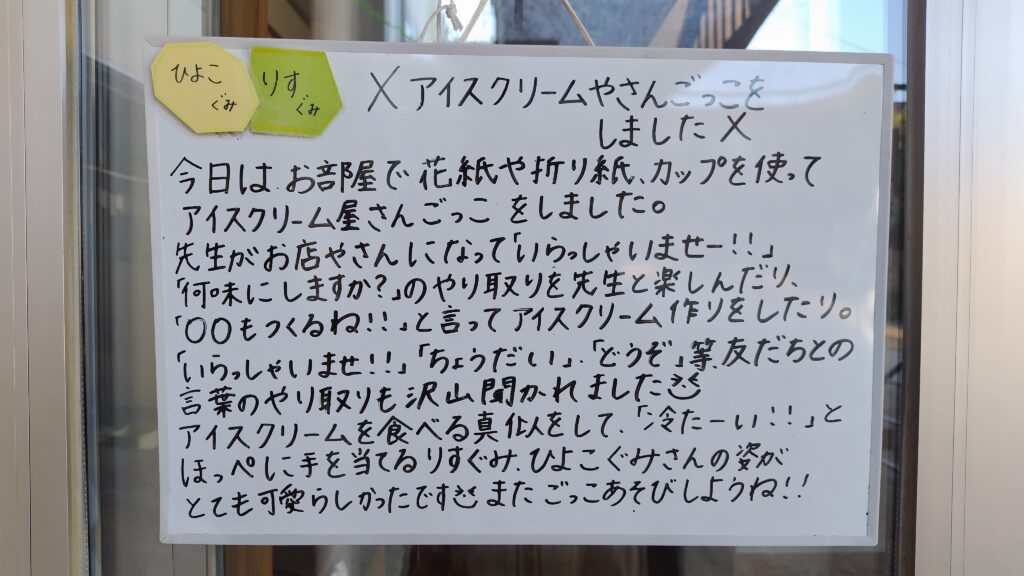 ひよこ
ぐみ
りす
ぐみ
X アイスクリームやさんごっこを
しました X
今日は お部屋で 花紙や折り紙、カップを使って
アイスクリーム屋さんごっこ をしました。
先生がお店やさんになって「いらっしゃいませー!!」
「何味にしますか?」のやり取りを先生と楽しんだり、
「〇〇もつくるね!!」と言って アイスクリーム作りをしたり。
「いらっしゃいませ!!」「ちょうだい」、「どうぞ」等、友だちとの
言葉のやり取りも沢山聞かれました
アイスクリームを食べる真似をして、「冷たーい!!」と
ほっぺに手を当てるりすぐみ、ひよこぐみさんの姿が
とても可愛らしかったです また ごっこあそびしようね!!